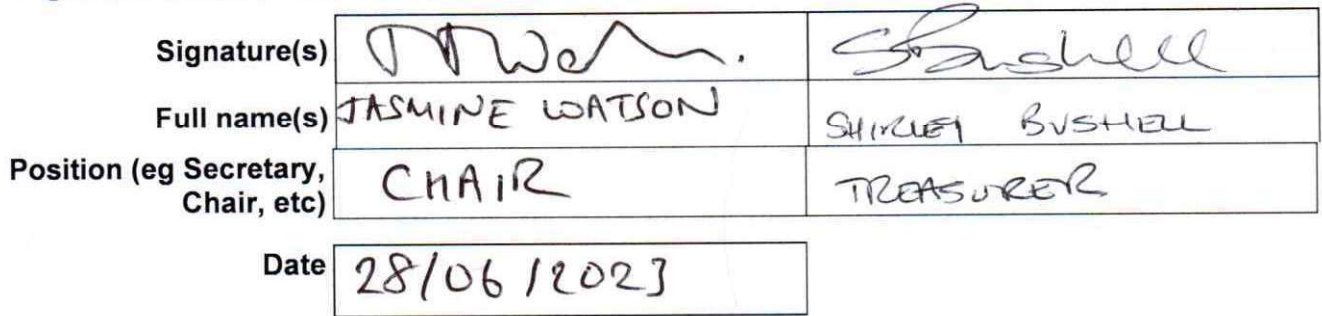 Signature(s) SBushell
Full name(s) JASMINE WATSON SHIRLEY BUSHELL
Position (eg Secretary, CHAIR TREASURER
Chair, etc)
Date 28/06/2023